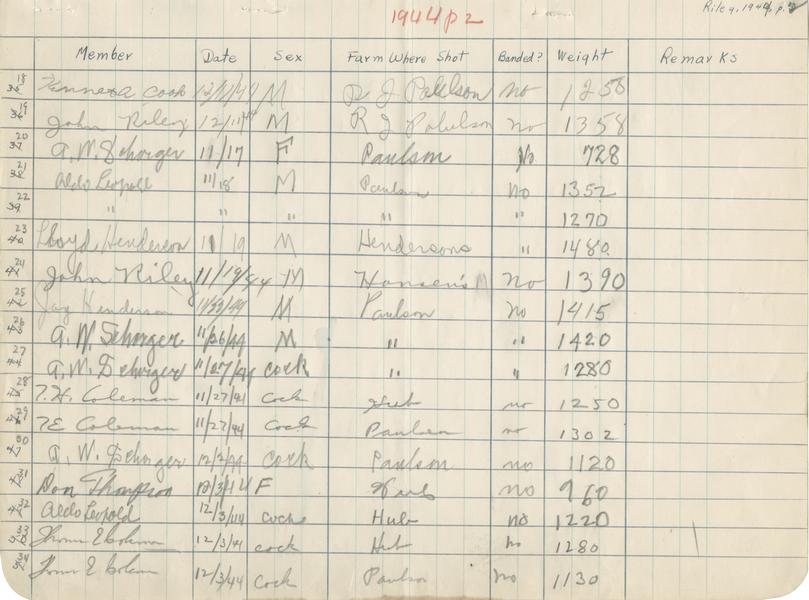 1944 p 2
Riley, 1944, p. 2
Member Date Sex Farm Where Shot Banded? Weight Remarks
18 Kenneth Cook M R J Paulson no 1258
19 John Riley 12/1 M R J Paulson no 1358
20 37 A. W. Schorger 11/17 F Paulson No 728
21 38 Aldo Leopold 11/18 M Paulson no 1352
22 39 " " " " " 1270
23 40 Lloyd Henderson 11/19 M Hendersons " 1480
24 41 John Riley 11/19/44 M Hansen's no 1390
25 42 Jay Henderson 11/23/44 M Paulson no 1415
26 43 A. W. Schorger 11/26/44 M " " 1420
27 44 A. W. Schorger 11/27/44 cock " " 1280
28 45 T. H. Coleman 11/27/44 Cock Hub no 1250
29 46 TE Coleman 11/27/44 Cock Paulson no 1302
30 47 A. W. Schorger 12/2/44 cock Paulson no 1120
31 48 Don Thompson 12/3/44 F Hub no 960
32 49 Aldo Leopold 12/3/44 cock Hub no 1220
33 50 Thomas E Coleman 12/3/44 cock Hub no 1280
34 Thomas E Coleman 12/3/44 cock Paulson no 1130